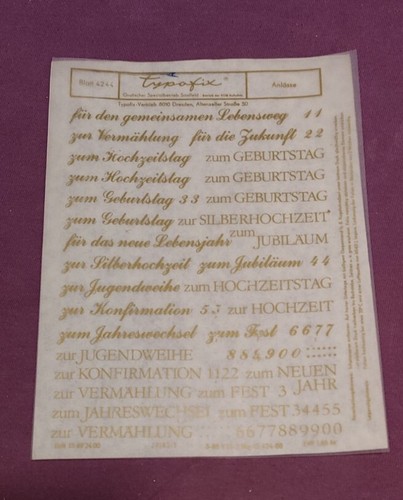 Blatt 4244
typofix®
Anlässe
Typofix-Vertrieb 8010 Dresden, Altenzeller Straße 50
für den gemeinsamen Lebensweg 11
zur Vermählung für die Zukunft 22
zum Hochzeitstag zum GEBURTSTAG
zum Hochzeitstag zum GEBURTSTAG
zum Geburtstag 33 zum GEBURTSTAG
zum Geburtstag zur SILBERHOCHZEIT
für das neue Lebensjahr zum JUBILÄUM
zur Silberhochzeit zum Jubiläum 44
zur Jugendweihe zum HOCHZEITSTAG
zur Konfirmation 55 zur HOCHZEIT
zum Jahreswechsel zum Fest 6677
zur JUGENDWEIHE 88,900
zur KONFIRMATION 1122 zum NEUEN JAHR
zur VERMÄHLUNG zum FEST 3
zum JAHRESWECHSEL zum FEST 34455
zur VERMÄHLUNG 6677889900